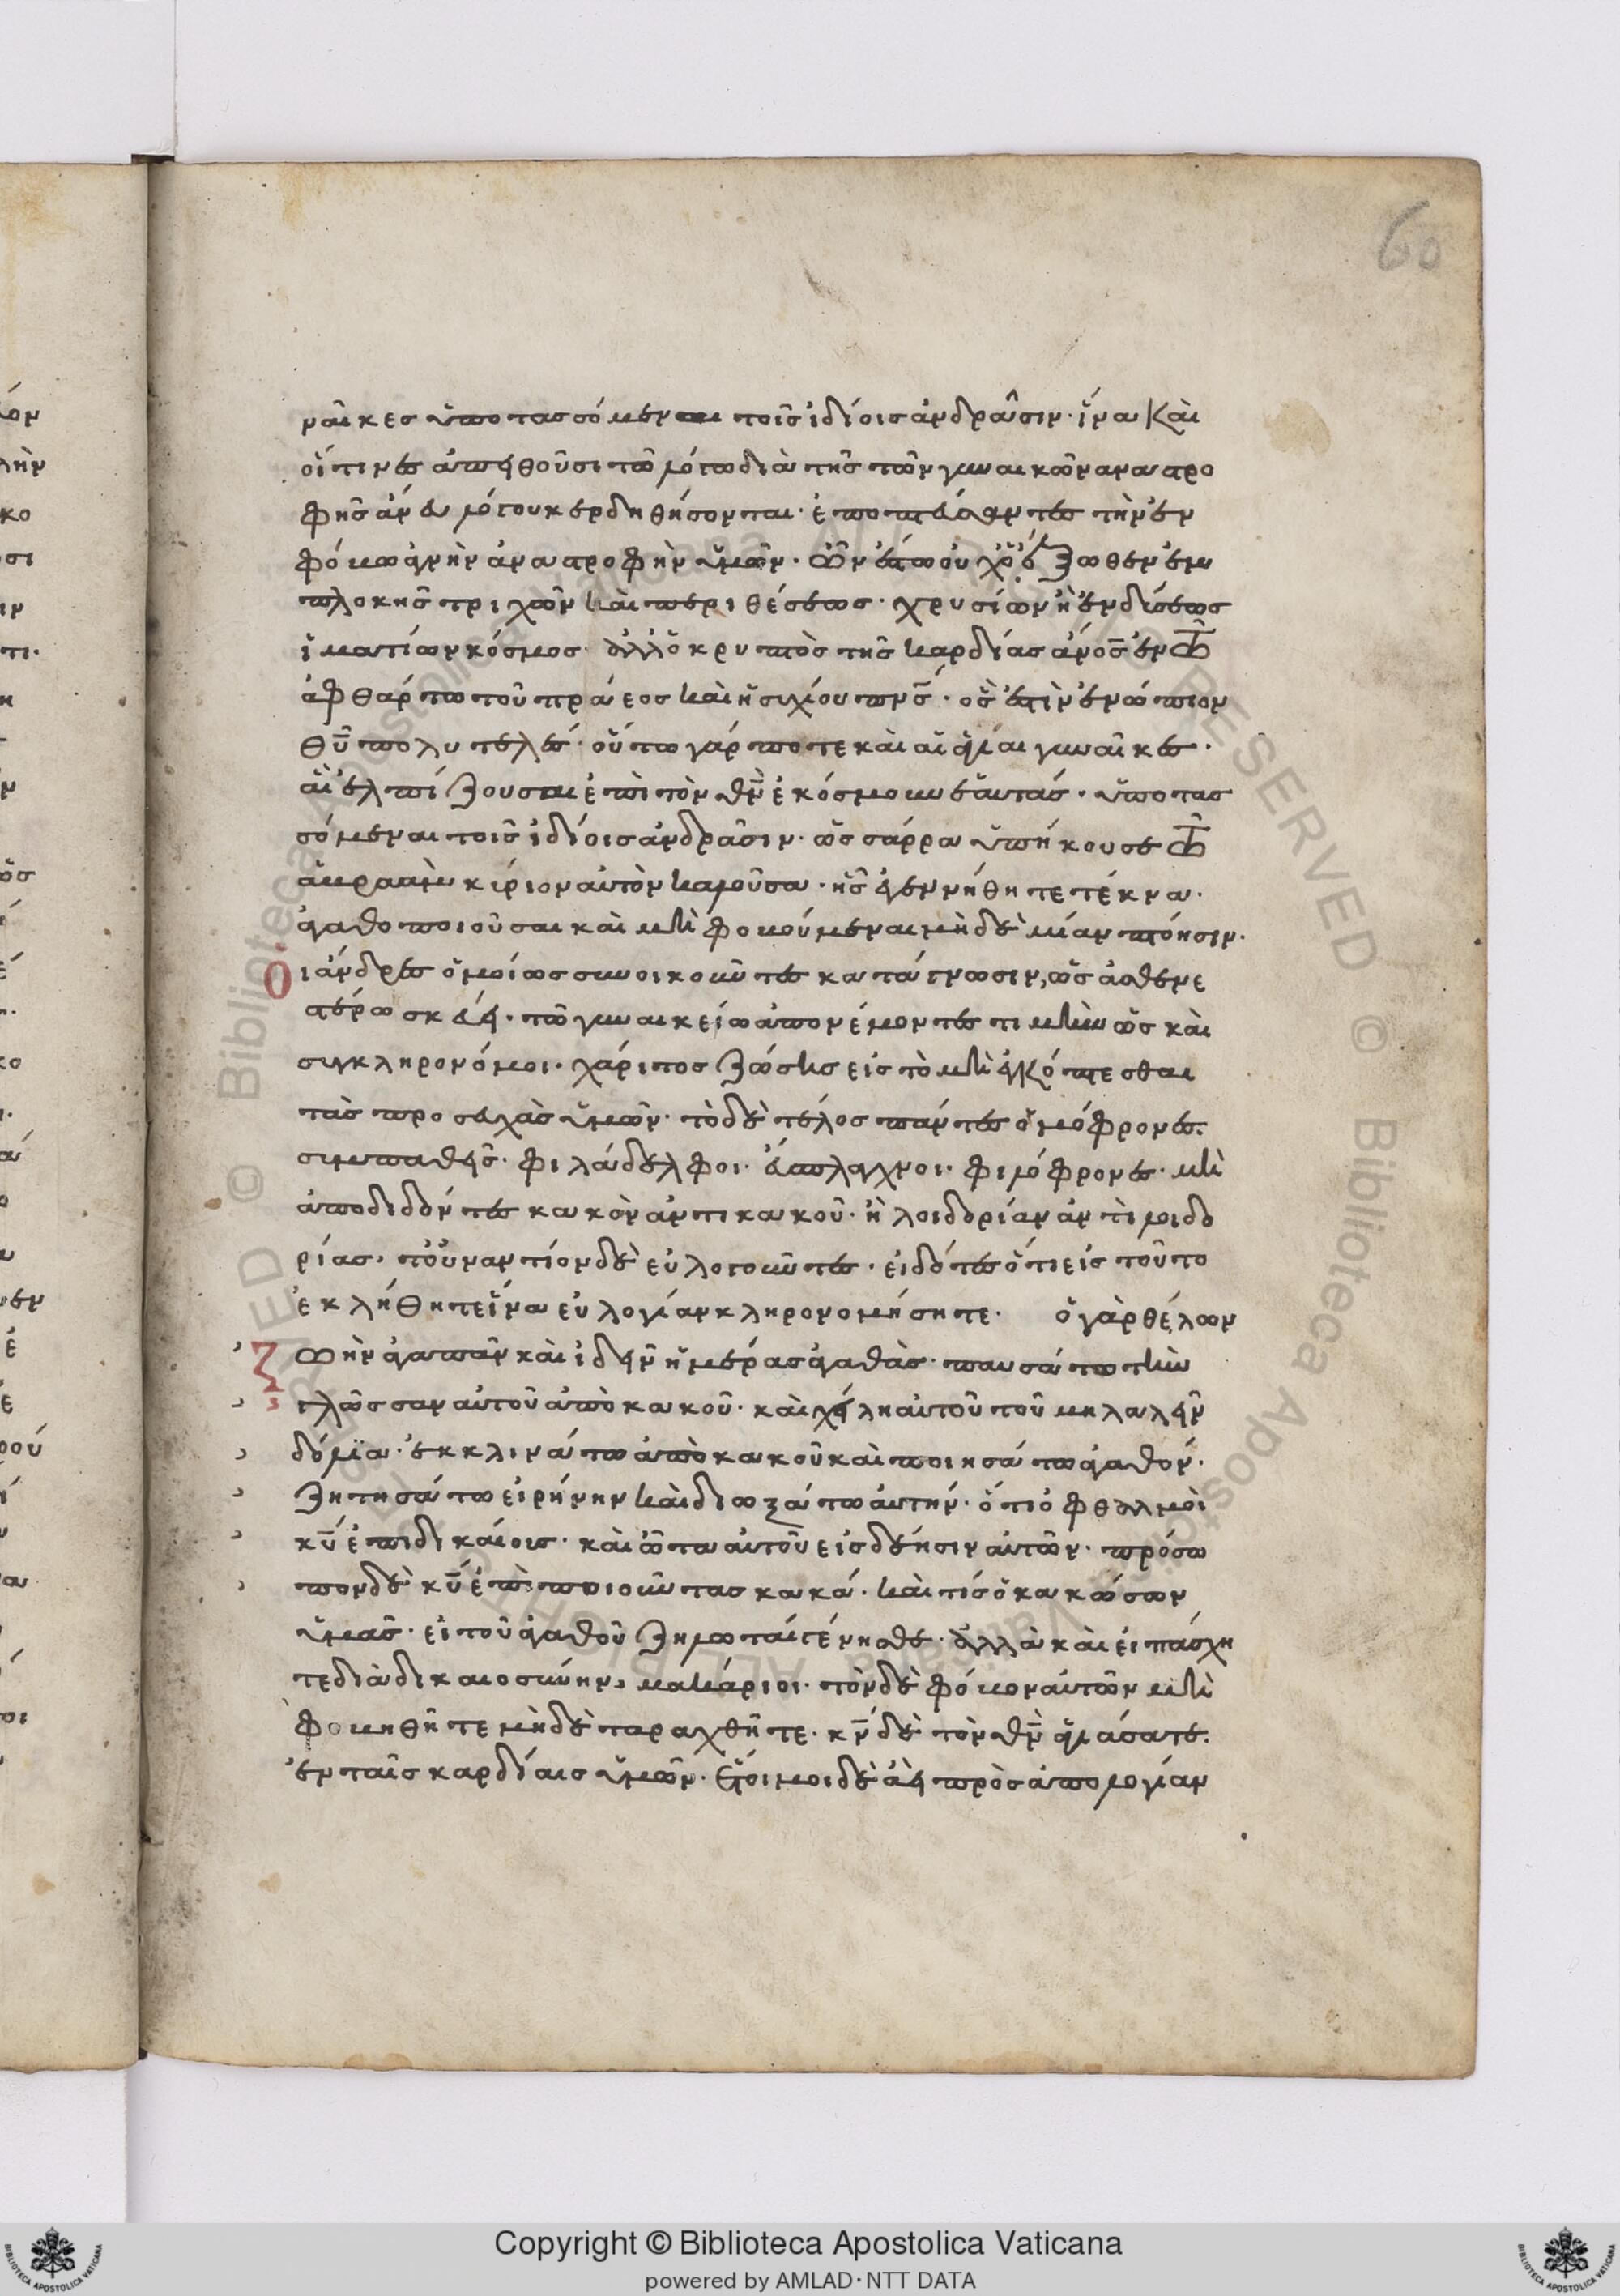 60
ναῖκες ὑποτασσόμεναι τοῖς ἰδίοις ἀνδράσιν· ἵνα καὶ
οἵτινες ἀπειθοῦσι τῶ λόγω διὰ τῆς τῶν γυναικῶν αναστρο
φῆς ἄνευ λόγου κερδηθήσονται· ἐποπτεύσαντες τὴν ἐν
φόβω ἁγνὴν ἀναστροφὴν ὑμῶν· ὧν ἔστω οὐχ ὁ ἔξωθεν ἐμ
πλοκῆς τριχῶν καὶ περιθέσεως· χρυσίων ἢ ἐνδύσεως
ἱματίων κόσμος· ἀλλ' ὁ κρυπτὸς τῆς καρδίας ἄνος ἐν τῶ
ἀφθάρτω τοῦ πράεος καὶ ἡσυχίου πνς· ὅς ἐστὶν ἐνώπιον
θυ πολυτελές· οὕτω γάρ ποτε καὶ αἱ ἅγιαι γυναῖκες·
αἱ ἐλπίζουσαι ἐπὶ τὸν θν ἐκόσμουν ἑαυτάς· ὑποτασ
σόμεναι τοῖς ἰδίοις ἀνδράσιν· ὡς σάρρα ὑπήκουσε τῶ
ἀβραὰμ κύριον αὐτὸν καλοῦσα· ἧς ἐγεννήθητε τέκνα·
ἀγαθοποιοῦσαι καὶ μὴ φοβούμεναι μηδὲ μίαν πτόησιν·
Οι ἄνδρες ὁμοίως συνοικοῦντες κατά γνωσιν, ὡς ἀσθενε
στέρω σκεύει· τῶ γυναικείω ἀπονέμοντες τιμὴν ὡς καὶ
συγκληρονόμοι· χάριτος ζώσης εἰς τὸ μὴ ἐγκόπτεσθαι
τὰς προσευχὰς ὑμῶν· τὸ δὲ τέλος πάντες ὁμόφρονες·
συμπαθεῖς· φιλάδελφοι· εὔσπλαγχνοι· φιλόφρονες· μὴ
ἀποδιδόντες κακὸν ἀντι κακοῦ· ἢ λοιδορίαν ἀντὶ λοιδο
ρίας, τοὐναντίον δὲ εὐλογοῦντες· εἰδότες ὅτι εἰς τοῦτο
ἐκλήθητε ἵνα εὐλογίαν κληρονομήσητε· ὁ γὰρ θέλων
ζωὴν ἀγαπᾶν καὶ ἰδεῖν ἡμέρας ἀγαθὰς· παυσάτω τὴν
γλῶσσαν αὐτοῦ ἀπὸ κακοῦ· καὶ χείλη αὐτοῦ τοῦ μη λαλεῖν
δόλια· ἐκκλινάτω ἀπὸ κακοῦ καὶ ποιησάτω ἀγαθόν·
ζητησάτω εἰρήνην καὶ διωξάτω αὐτήν· ὅτι ὀφθαλμοὶ
κυ ἐπι δικαίους· καὶ ὦτα αὐτοῦ εἰς δέησιν αὐτῶν· πρόσω
πον δὲ κυ ἐπὶ ποιοῦντας κακά· καὶ τίς ὁ κακώσων
ὑμᾶς· εἰ τοῦ ἀγαθοῦ ζηλωταί γένησθε· ἀλλὰ καὶ εἰ πάσχη
τε διὰ δικαιοσύνην, μακάριοι· τὸν δὲ φόβον αὐτῶν μὴ
φοβηθῆτε μηδὲ ταραχθῆτε· κν δὲ τὸν θν ἁγιάσατε·
ἐν ταῖς καρδίαις ὑμῶν· ἕτοιμοι δὲ ἀεὶ πρὸς ἀπολογίαν
Copyright © Biblioteca Apostolica Vaticana
powered by AMLAD·NTT DATA